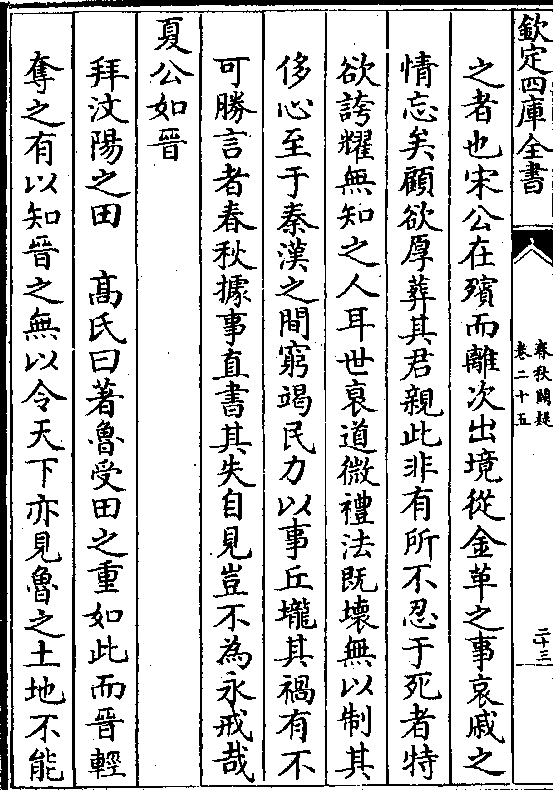 欽定四庫全書
春秋闕疑
卷二十五
二十三
之者也宋公在殯而離次出境從金革之事哀戚之
情忘矣顧欲厚葬其君親此非有所不忍于死者特
欲誇耀無知之人耳世衰道微禮法既壞無以制其
侈心至于秦漢之間窮竭民力以事丘壠其禍有不
可勝言者春秋據事直書其失自見豈不為永戒哉
夏公如晉
拜汶陽之田 髙氏曰著魯受田之重如此而晉輕
奪之有以知晉之無以令天下亦見魯之土地不能